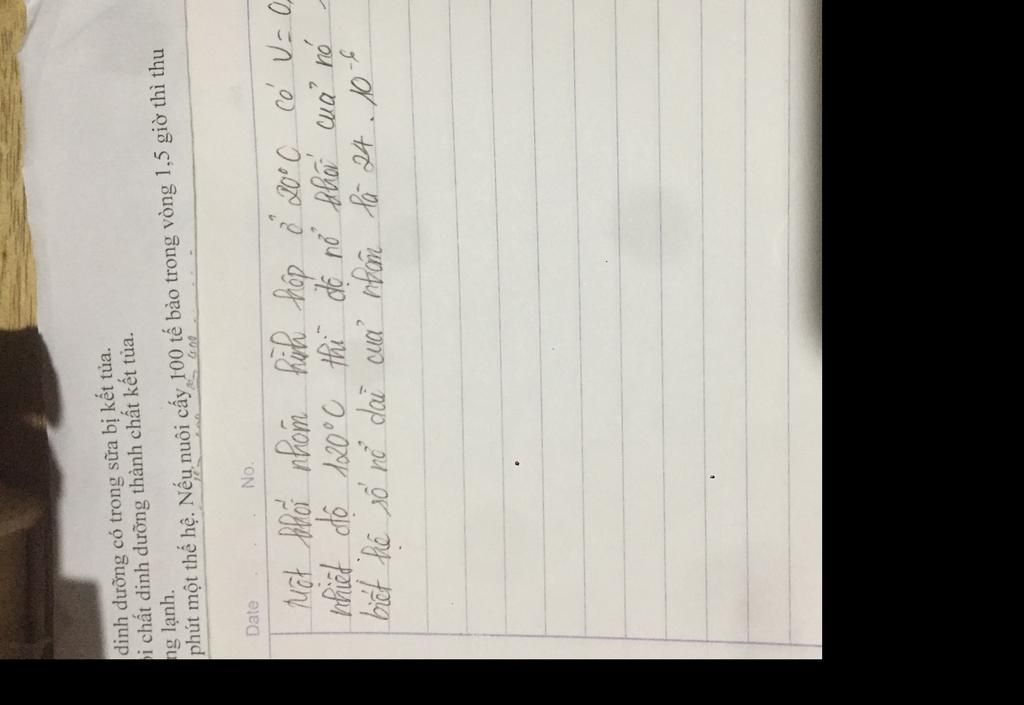 dinh dưỡng có trong sữa bị kết tủa.
i chất dinh dưỡng thành chất kết tủa.
ng lạnh.
phút một thế hệ. Nếu nuôi cấy 100 tế bào trong vòng 1,5 giờ thì thu
Date . . . No.
Một khối nhôm hình hộp ở 20°C có V = 0,
nhiệt độ 120°C thì độ nở khối của nó
biết hệ số nở dài của nhôm là 24 . 10⁻⁶